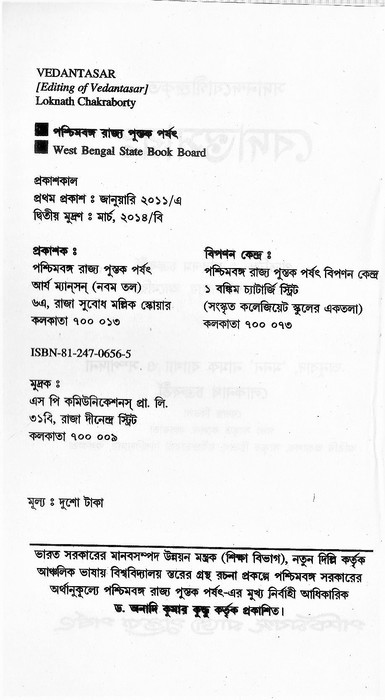 VEDANTASAR
[Editing of Vedantasar]
Loknath Chakraborty
পশ্চিমবঙ্গ রাজ্য পুস্তক পর্ষৎ
West Bengal State Book Board
প্রকাশকাল
প্রথম প্রকাশ : জানুয়ারি ২০১১/এ
দ্বিতীয় মুদ্রণ : মার্চ, ২০১৪/বি
প্রকাশক :
পশ্চিমবঙ্গ রাজ্য পুস্তক পর্ষৎ
আর্য ম্যান্‌সন্ (নবম তল)
৬এ, রাজা সুবোধ মল্লিক স্কোয়ার
কলকাতা ৭০০ ০১৩
বিপণন কেন্দ্র :
পশ্চিমবঙ্গ রাজ্য পুস্তক পর্ষৎ বিপণন কেন্দ্র
১ বঙ্কিম চ্যাটার্জি স্ট্রিট
(সংস্কৃত কলেজিয়েট স্কুলের একতলা)
কলকাতা ৭০০ ০৭৩
ISBN-81-247-0656-5
মুদ্রক :
এস পি কমিউনিকেশনস্ প্রা. লি.
৩১বি, রাজা দীনেন্দ্র স্ট্রিট
কলকাতা ৭০০ ০০৯
মূল্য : দুশো টাকা
ভারত সরকারের মানবসম্পদ উন্নয়ন মন্ত্রক (শিক্ষা বিভাগ), নতুন দিল্লি কর্তৃক
আঞ্চলিক ভাষায় বিশ্ববিদ্যালয় স্তরের গ্রন্থ রচনা প্রকল্পে পশ্চিমবঙ্গ সরকারের
অর্থানুকূল্যে পশ্চিমবঙ্গ রাজ্য পুস্তক পর্ষৎ-এর মুখ্য নির্বাহী আধিকারিক
ড. কুমার কুন্ডু কর্তৃক প্রকাশিত।